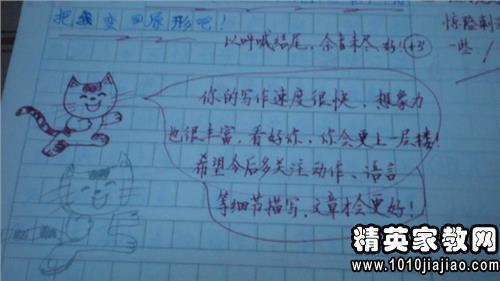 把我变回原形吧！
以叫喊结尾，余音未尽，好！+3
惊险刺
一些！
你的写作速度很快，想象力
也很丰富，看好你，你会更上一层楼！
希望今后多关注动作、语言
等细节描写，文章才会更好！
精英家教网
www.1010jiajiao.com